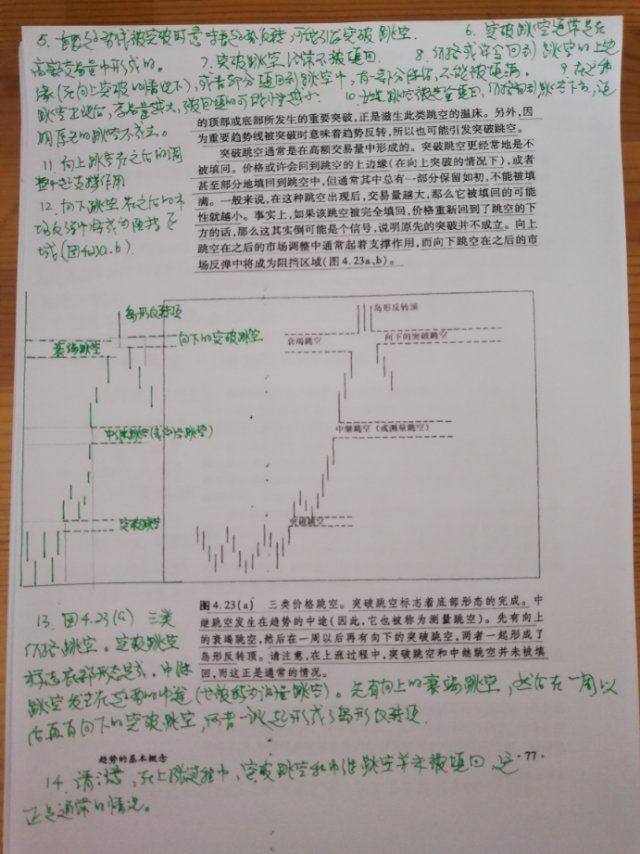 5. 重要趋势线被突破时意味着趋势反转,可能引发突破跳空. 6. 突破跳空通常是在
高额交易量中形成的。 7. 突破跳空经常不被填回. 8. 价格或许会回到跳空的上边
缘(在向上突破的情况下),或者部分填回到跳空中,有一部分保留,不能被填满。 9. 在这种
跳空出现后,交易量越大,被回填的可能性就越小. 10. 如果跳空被完全填回,价格回到跳空下方,说
明原先的跳空不成立。
的顶部或底部所发生的重要突破,正是滋生此类跳空的温床。另外,因
为重要趋势线被突破时意味着趋势反转,所以也可能引发突破跳空。
突破跳空通常是在高额交易量中形成的。突破跳空更经常地是不
被填回。价格或许会回到跳空的上边缘(在向上突破的情况下),或者
甚至部分地填回到跳空中,但通常其中总有一部分保留如初,不能被填
满。一般来说,在这种跳空出现后,交易量越大,那么它被填回的可能
性就越小。事实上,如果该跳空被完全填回,价格重新回到了跳空的下
方的话,那么这其实倒可能是个信号,说明原先的突破并不成立。向上
跳空在之后的市场调整中通常起着支撑作用,而向下跳空在之后的市
场反弹中将成为阻挡区域(图4.23a,b)。
11. 向上跳空在之后的调
整中起支撑作用
12. 向下跳空在之后的市
场反弹中将成为阻挡区
域(图4.23a.b).
岛形反转顶
向下的突破跳空
衰竭跳空
中继跳空(或测量跳空)
突破跳空
岛形反转顶
衰竭跳空
向下的突破跳空
中继跳空(或测量跳空)
突破跳空
图4.23(a) 三类价格跳空。突破跳空标志着底部形态的完成。中
继跳空发生在趋势的中途(因此,它也被称为测量跳空)。先有向上
的衰竭跳空,然后在一周以后再有向下的突破跳空,两者一起形成了
岛形反转顶。请注意,在上涨过程中,突破跳空和中继跳空并未被填
回,而这正是通常的情况。
13. 图4.23(a) 三类
价格跳空。突破跳空
标志底部形态完成。中继
跳空发生在趋势的中途(也被称为测量跳空)。先有向上的衰竭跳空,然后在一周以
后再有向下的突破跳空,两者一起形成了岛形反转顶.
趋势的基本概念
·77·
14. 请注意,在上涨过程中,突破跳空和中继跳空并未被填回,这
正是通常的情况。